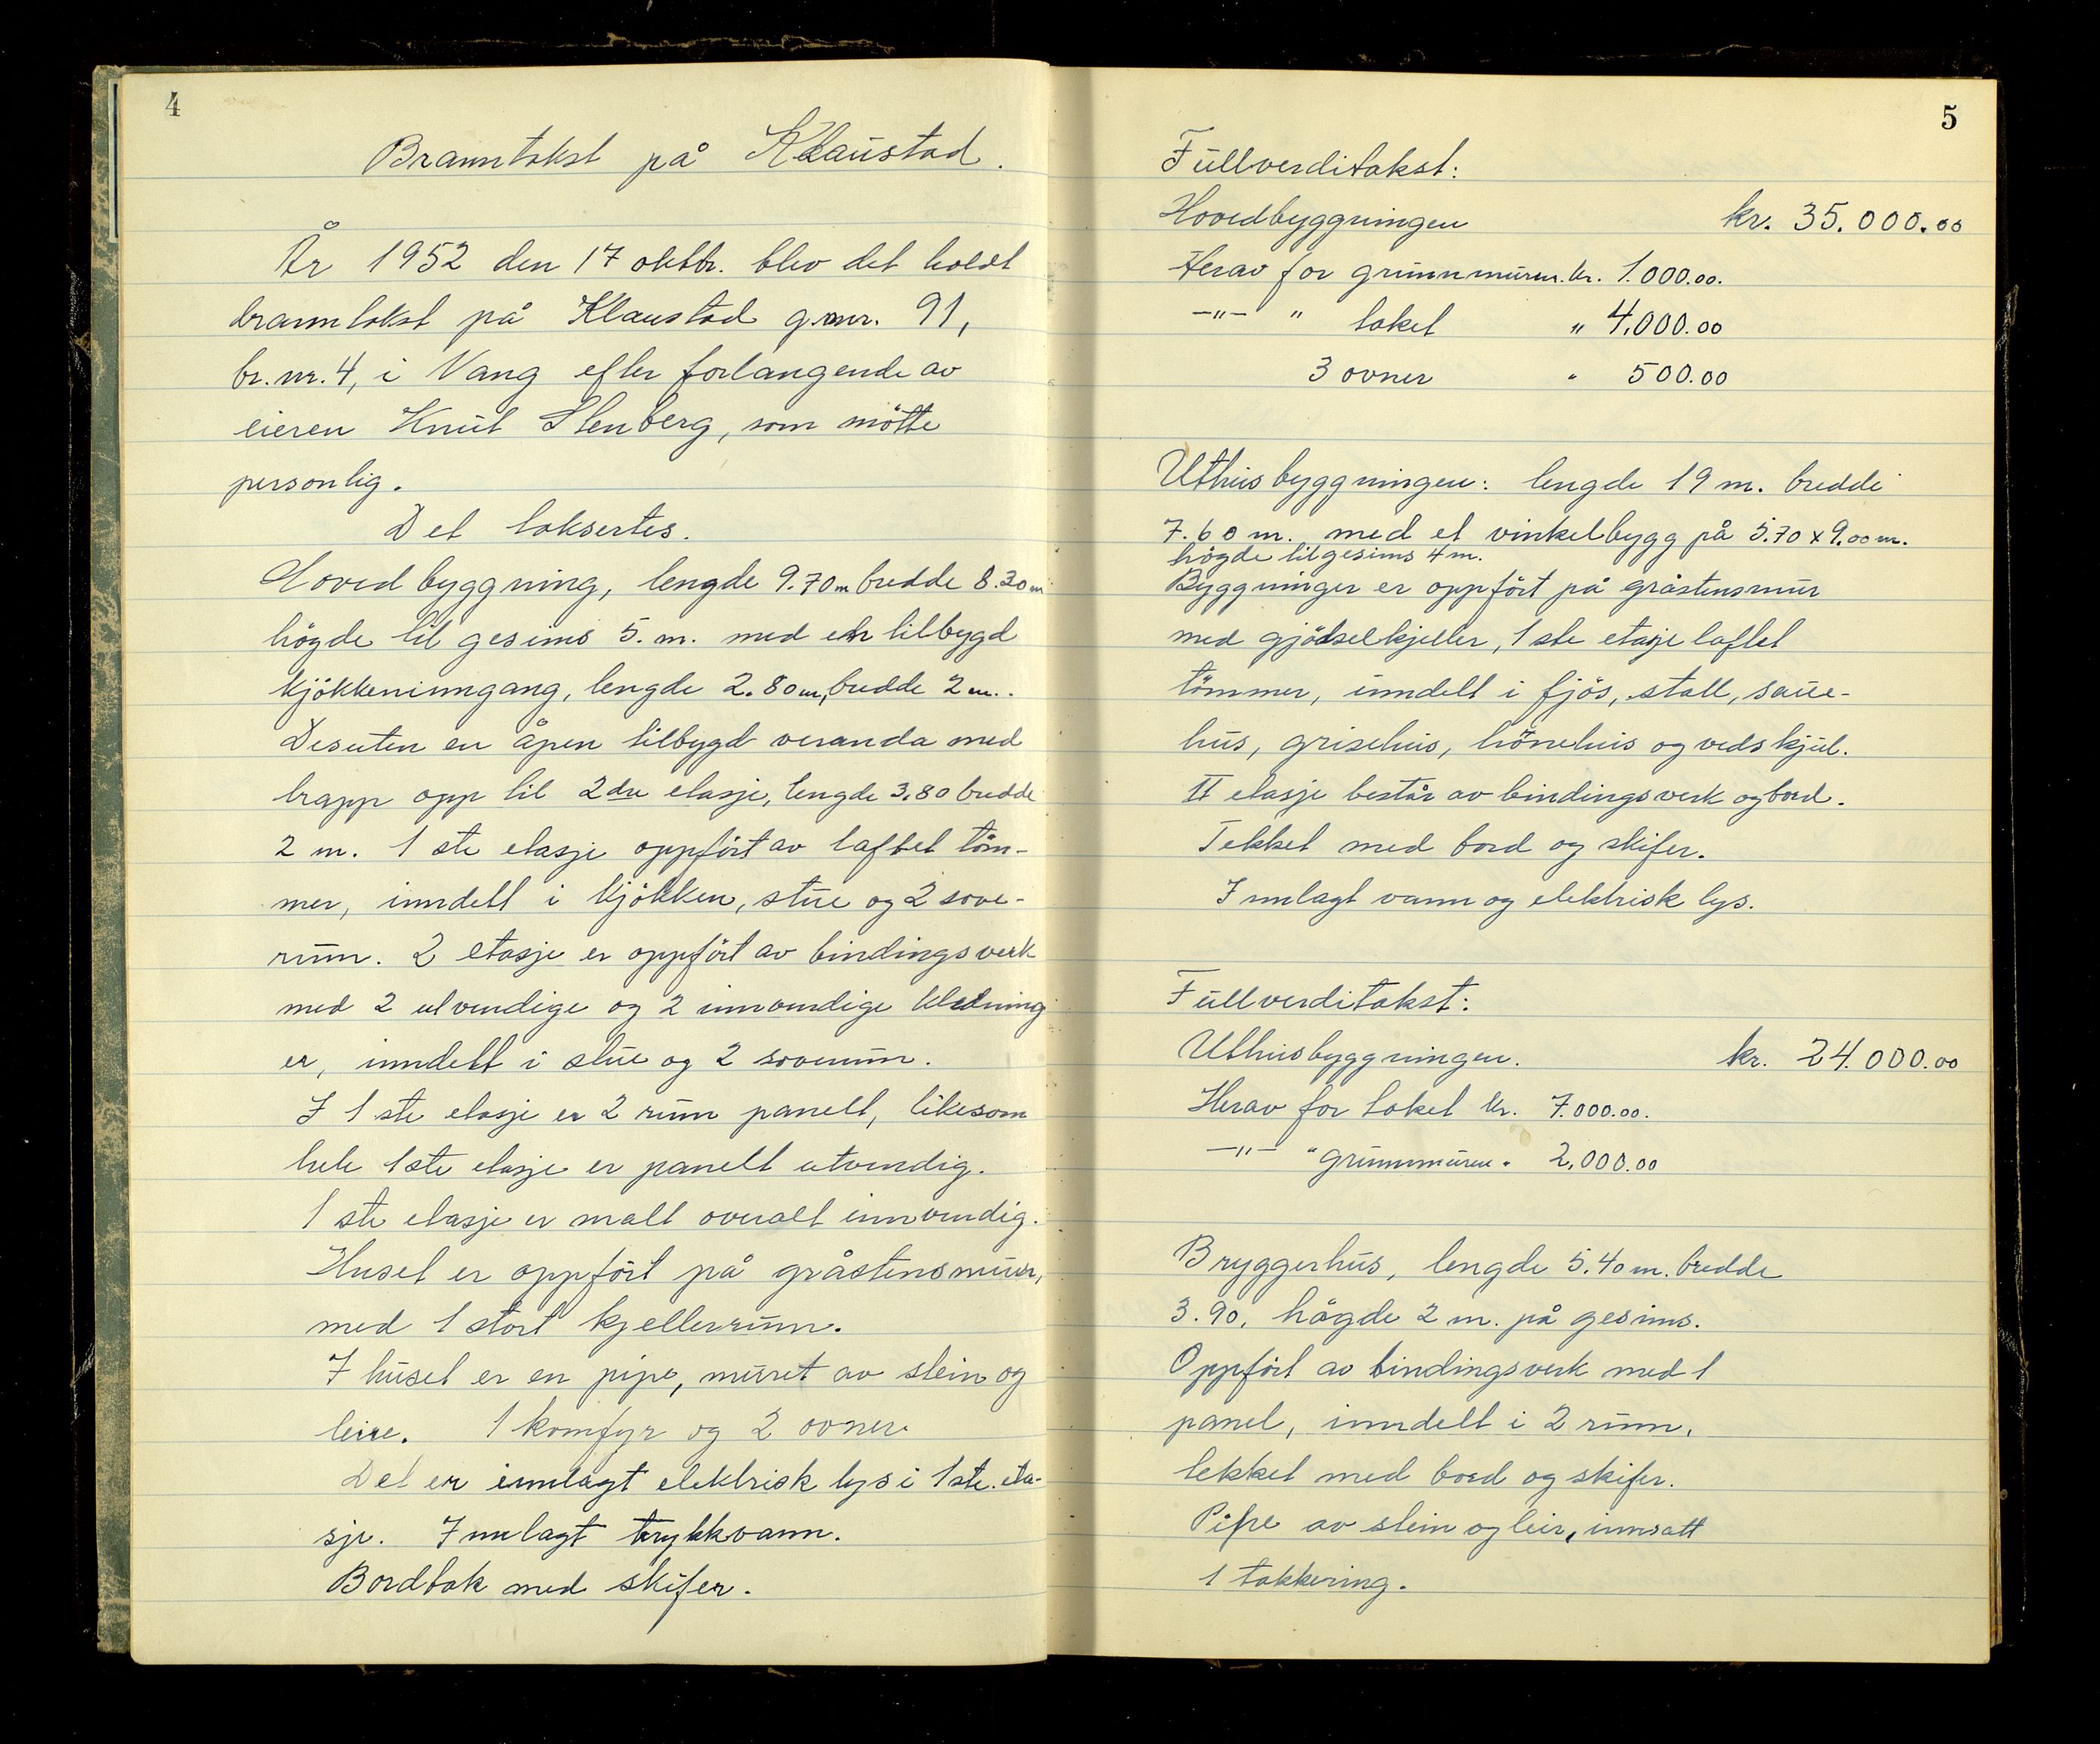 4
Branntakst på Klaustad.
År 1952 den 17 oktbr. blev det holdt
branntakst på Klaustad g.nr. 91,
br.nr. 4, i Vang efter forlangende av
eieren Knut Stenberg, som mötte
personlig.
Det taksertes.
Hovedbyggning, lengde 9.70 m bredde 8.30 m
högde til gesims 5. m. med en tilbygd
kjökkeninngang, lengde 2.80 m, bredde 2 m.
Desuten en åpen tilbygd veranda med
trapp opp til 2dre etasje, lengde 3.80 bredde
2 m. 1 ste etasje oppfört av laftet töm-
mer, inndelt i kjökken, stue og 2 sove-
rum. 2 etasje er oppfört av bindingsverk
med 2 utvendige og 2 innvendige kledning
er, inndelt i stue og 2 soverum.
I 1 ste etasje er 2 rum panelt, likesom
hele 1ste etasje er panelt utvendig.
1 ste etasje er malt overalt innvendig.
Huset er oppfört på gråstensmur,
med 1 stort kjellerrum.
I huset er en pipe, muret av stein og
leire. 1 komfyr og 2 ovner.
Det er innlagt elektrisk lys i 1ste. eta-
sje. Innlagt trykkvann.
Bordtak med skifer.
5
Fullverditakst:
Hovedbyggningen kr. 35.000.00
Herav for grunnmuren. kr. 1.000.00.
—"— " taket " 4.000.00
3 ovner " 500.00
Uthusbyggningen: lengde 19 m. bredde
7.60 m. med et vinkelbygg på 5.70 x 9.00 m.
högde til gesims 4 m.
Byggninger er oppfört på gråstensmur
med gjödselkjeller, 1 ste etasje laftet
tömmer, inndelt i fjös, stall, saue-
hus, grisehus, hönehus og vedskjul.
II etasje består av bindingsverk og bord.
Tekket med bord og skifer.
Innlagt vann og elektrisk lys.
Fullverditakst:
Uthusbyggningen. kr. 24.000.00
Herav for taket kr. 7.000.00.
—"— " grunnmuren " 2,000.00
Bryggerhus, lengde 5.40 m. bredde
3.90, högde 2 m. på gesims.
Oppfört av bindingsverk med 1
panel, inndelt i 2 rum,
tekket med bord og skifer.
Pipe av stein og leir, innsatt
1 takkering.